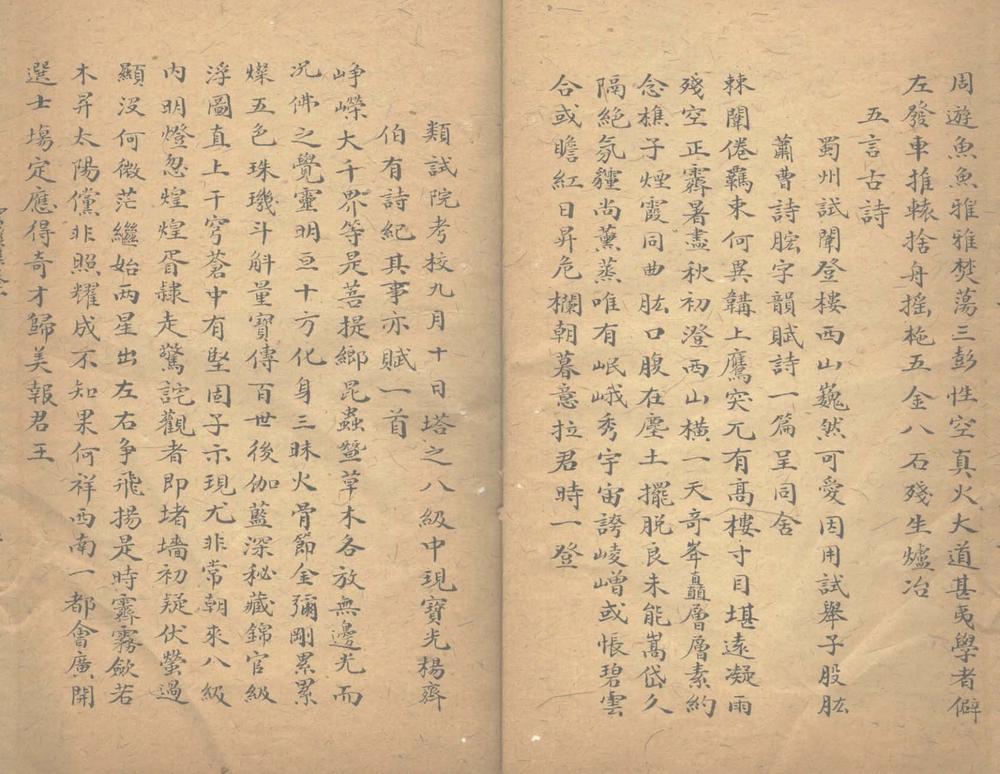 周遊魚魚雅雅焚蕩三彭性空真火大道甚夷學者僻
左發車推轅捨舟摇柂五金八石殘生爐冶
五言古詩
蜀州試闈登樓西山巍然可愛因用試舉子股肱
蕭曹詩肱字韻賦詩一篇呈同舍
棘闈倦羈束何異韝上鷹突兀有髙樓寸目堪遠凝雨
殘空正霽暑盡秋初澄西山横一天奇峯矗層層素約
念樵子煙霞同曲肱口腹在塵土擺脱良未能嵩岱久
隔絶氛霾尚薰蒸唯有岷峨秀宇宙誇崚嶒或悵碧雲
合或瞻紅日昇危欄朝暮意拉君時一登
類試院考校九月十日塔之八級中現寶光楊齊
伯有詩紀其事亦賦一首
崢嶸大千界等是菩提鄉昆蟲曁草木各放無邊光而
况佛之覺靈明亘十方化身三昧火骨節金彌剛累累
燦五色珠璣斗斛量寶傳百世後伽藍深秘藏錦官級
浮圖直上干穹蒼中有堅固子示現尤非常朝來八級
内明燈忽煌煌胥隷走驚詫觀者即堵墻初疑伏螢過
顯没何微茫繼始兩星出左右争飛揚是時霽霧斂若
木昇太陽儻非照耀成不知果何祥西南一都會廣開
選士塲定應得奇才歸美報君王